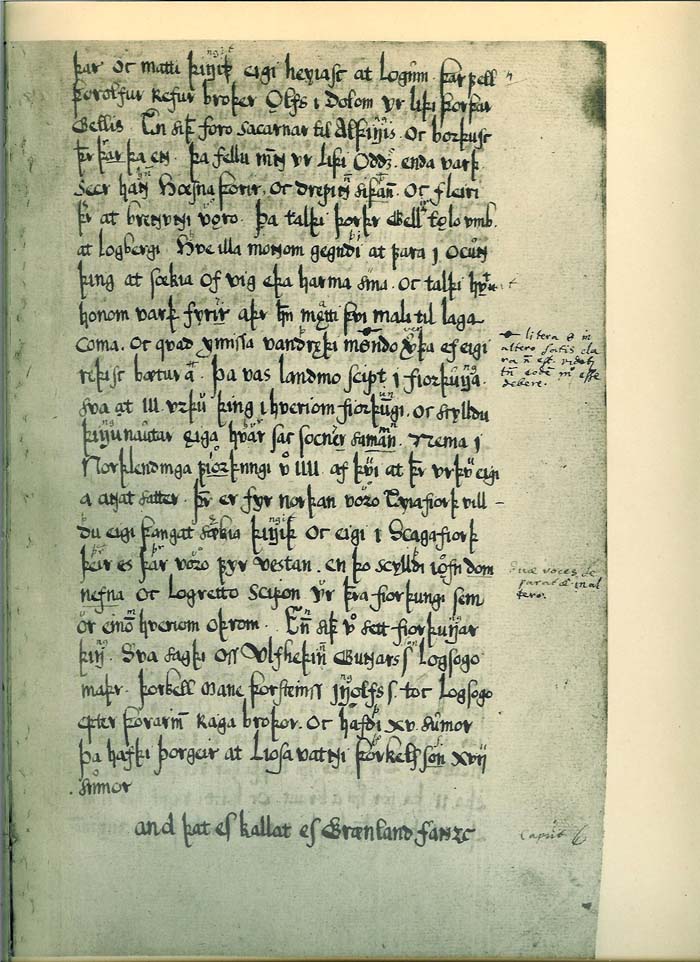 þar Oc matti þingit eigi heyiasc at Logum. þar fell
þorolfur Refur broþer Olfs i Dolom yr liþi þorþar
Gellis. En siþ foro sacarnar til Alþingis. Oc borþusc
þr þar þa en. þa fellu mn yr Liþi Odds. enda varþ
Secr han Hoesna þorir. Oc drepin siþan. Oc fleiri
þr at brenunni voro. Þa talþi þorþr Gell tolo vmb.
at Logbergi. Hve illa monom gegndi at fara i Ocun
þing at sœkia Of vig eþa harma sina. Oc talþi hvat
honom varþ fyrir aþr hn mætti þvi mali til laga
Coma. Oc quad ymissa vandręþi mondo verþa ef eigi
reþisc bœtur a. Þa vas landino scipt i fiorþunga.
sva at III vrþu þing i hveriom fiorþungi. Oc skylldu
þingunautar eiga hvar sac socner saman. Nema i
Norþlendinga fiorþungi v IIII. af þvi at þr vrþu eigi
a annat satter. þr er fyr norþan voro Eyiafiorþ vill-
du eigi þangat sœkia þingit Oc eigi i Scagafiorþ
þeir es þar voro fyr vestan. en þo scylldi iofn dom
nefna Oc Logretto Scipon yr þra fiorþungi sem
ör einom hveriom oþrom. En siþ v sett fiorþungar
þing. Sva sagþi Oss Vlfheþinn Gunars s Logsogo
maþr. þorkell Mane þorsteinss Ingolfs s. toc Logsogo
epter þorarin Raga broþor. Oc hafdi XV. sumor
Þa hafþi þorgeir at Liosa vatni þorkels son XVII
sumor
and þat es kallat es Grænland fanzc
litera e in
altero satis cla
debere.
Duæ voces se
paratæ in al
tero.
Caput 6